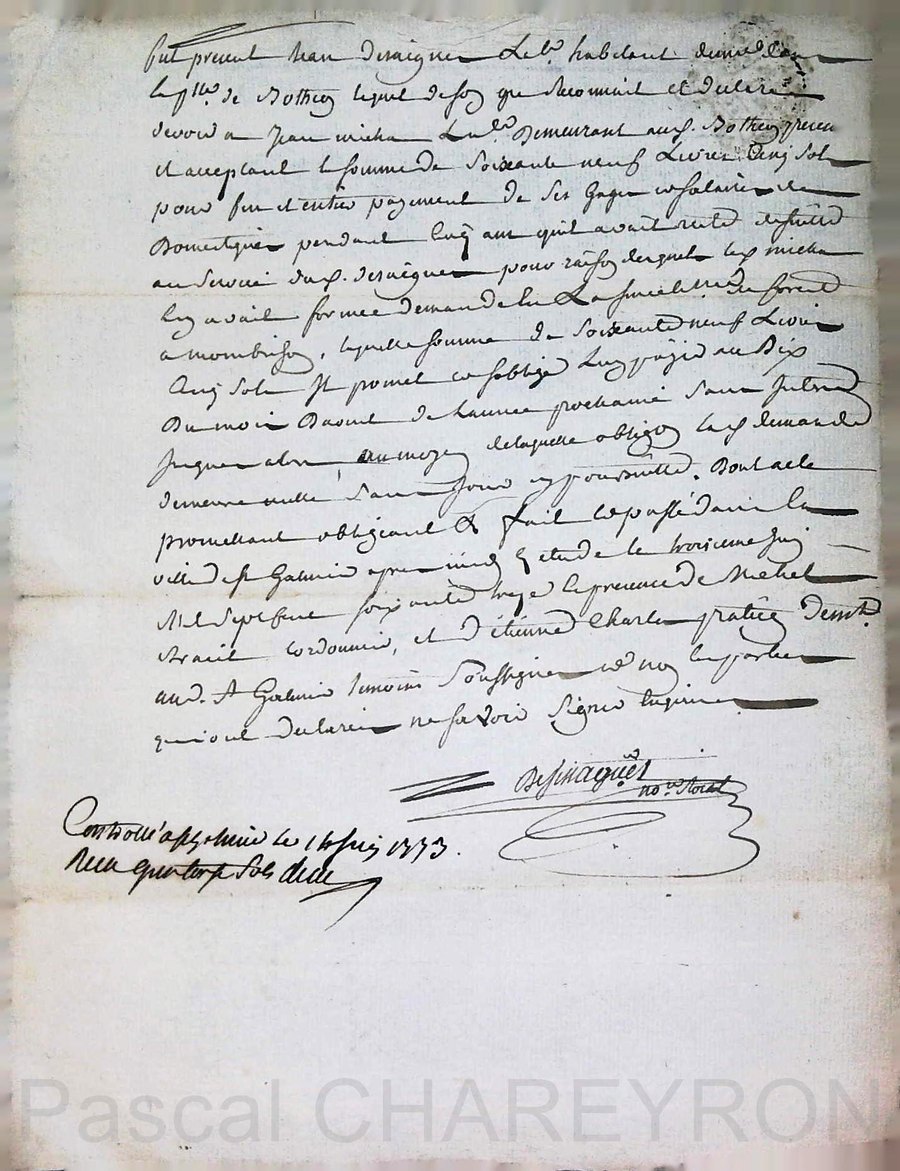 fut present Jean desaignes Lab.r habitant
la p.sse de Botheon lequel de gré reconnait et declare
devoir a Jean micha Lab.r Demeurant aud. Botheon present
et acceptant la somme de Soixante neuf Livres Cinq Sols
pour fin et entier payement de Ses Gages et salaires de
Domestique pendant Cinq ans qu'il avait resté
au Service dud. desaignes pour raison desquels led. micha
luy avait formée demande en La Senechaussée de forest
a montbrison, laquelle somme de Soixante neuf Livres
Cinq Sols Il promet et s'oblige Luy payer au Dix
Du mois Daoust de L'année prochaine Sans Interest
Jusques alors, au moyen de laquelle obligation lad. demande
demeure nulle Sans pouvoir être poursuivie. Dont acte
promettant obligeant &c fait et passé dans la
ville de St Galmier apres midy En etude le troisieme Juin
Mil Sept Cent soixante treize En presence de Michel
cordonnier, et D'étienne Charles praticien Demt.
aud. St Galmier temoins Soussignés et non les parties
qui ont declaré ne savoir Signer enquises
no.re Royal
Controllé a St Galmier le 14 Juin 1773.
Recu quatorze Sols
Pascal CHAREYRON